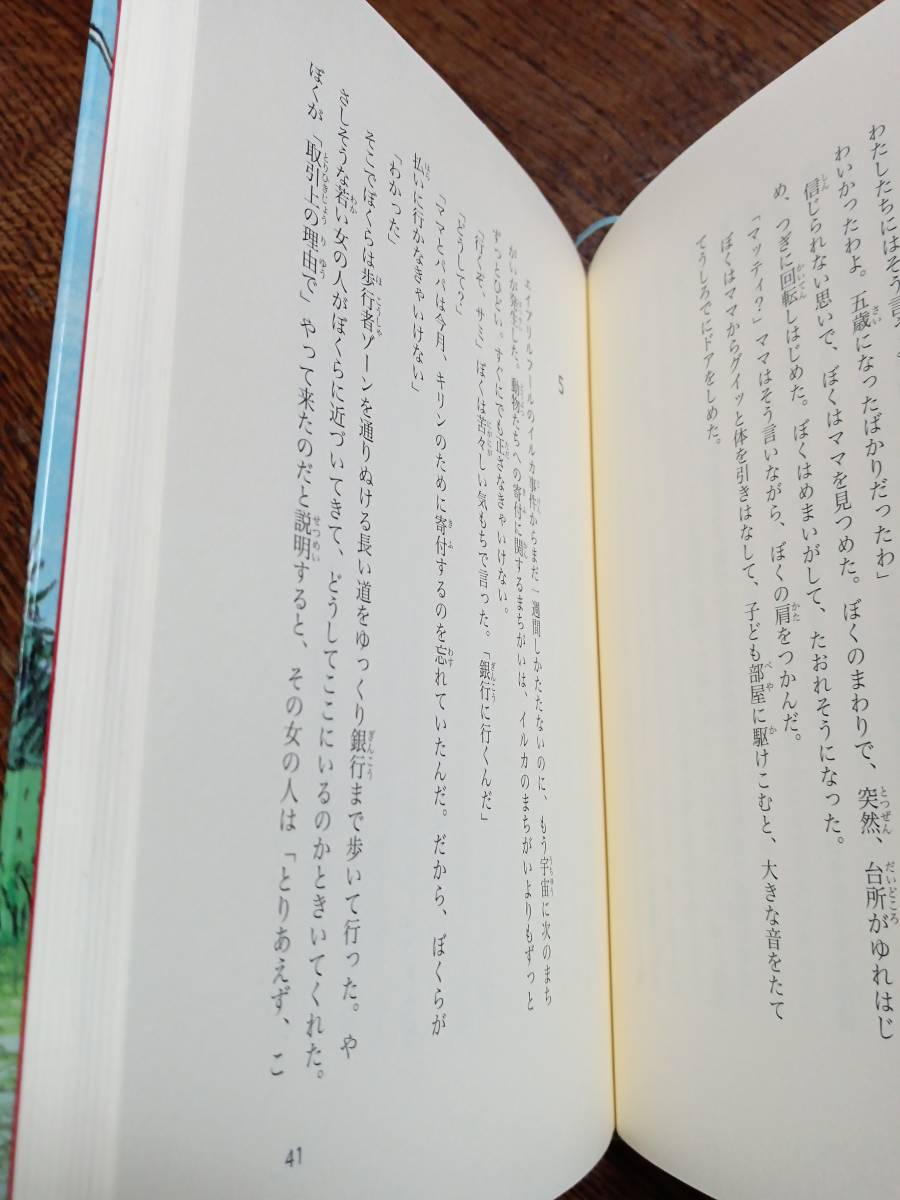 わたしたちにはそう言
わいかったわよ。五歳になったばかりだったわ」
信じられない思いで、ぼくはママを見つめた。ぼくのまわりで、突然、台所がゆれはじ
め、つぎに回転しはじめた。ぼくはめまいがして、たおれそうになった。
「マッティ?」ママはそう言いながら、ぼくの肩をつかんだ。
ぼくはママからグイッと体を引きはなして、子ども部屋に駆けこむと、大きな音をたて
てうしろでにドアをしめた。
5
エイプリルフールのイルカ事件からまだ一週間しかたたないのに、もう宇宙に次のまち
がいが発生した。動物たちへの寄付に関するまちがいは、イルカのまちがいよりもずっと
ずっとひどい。すぐにでも正さなきゃいけない。
「行くぞ、サミ」ぼくは苦々しい気もちで言った。「銀行に行くんだ」
「どうして?」
「ママとパパは今月、キリンのために寄付するのを忘れていたんだ。だから、ぼくらが
払いに行かなきゃいけない」
「わかった」
そこでぼくらは歩行者ゾーンを通りぬける長い道をゆっくり銀行まで歩いて行った。や
さしそうな若い女の人がぼくらに近づいてきて、どうしてここにいるのかときいてくれた。
ぼくが「取引上の理由で」やって来たのだと説明すると、その女の人は「とりあえず、こ
41